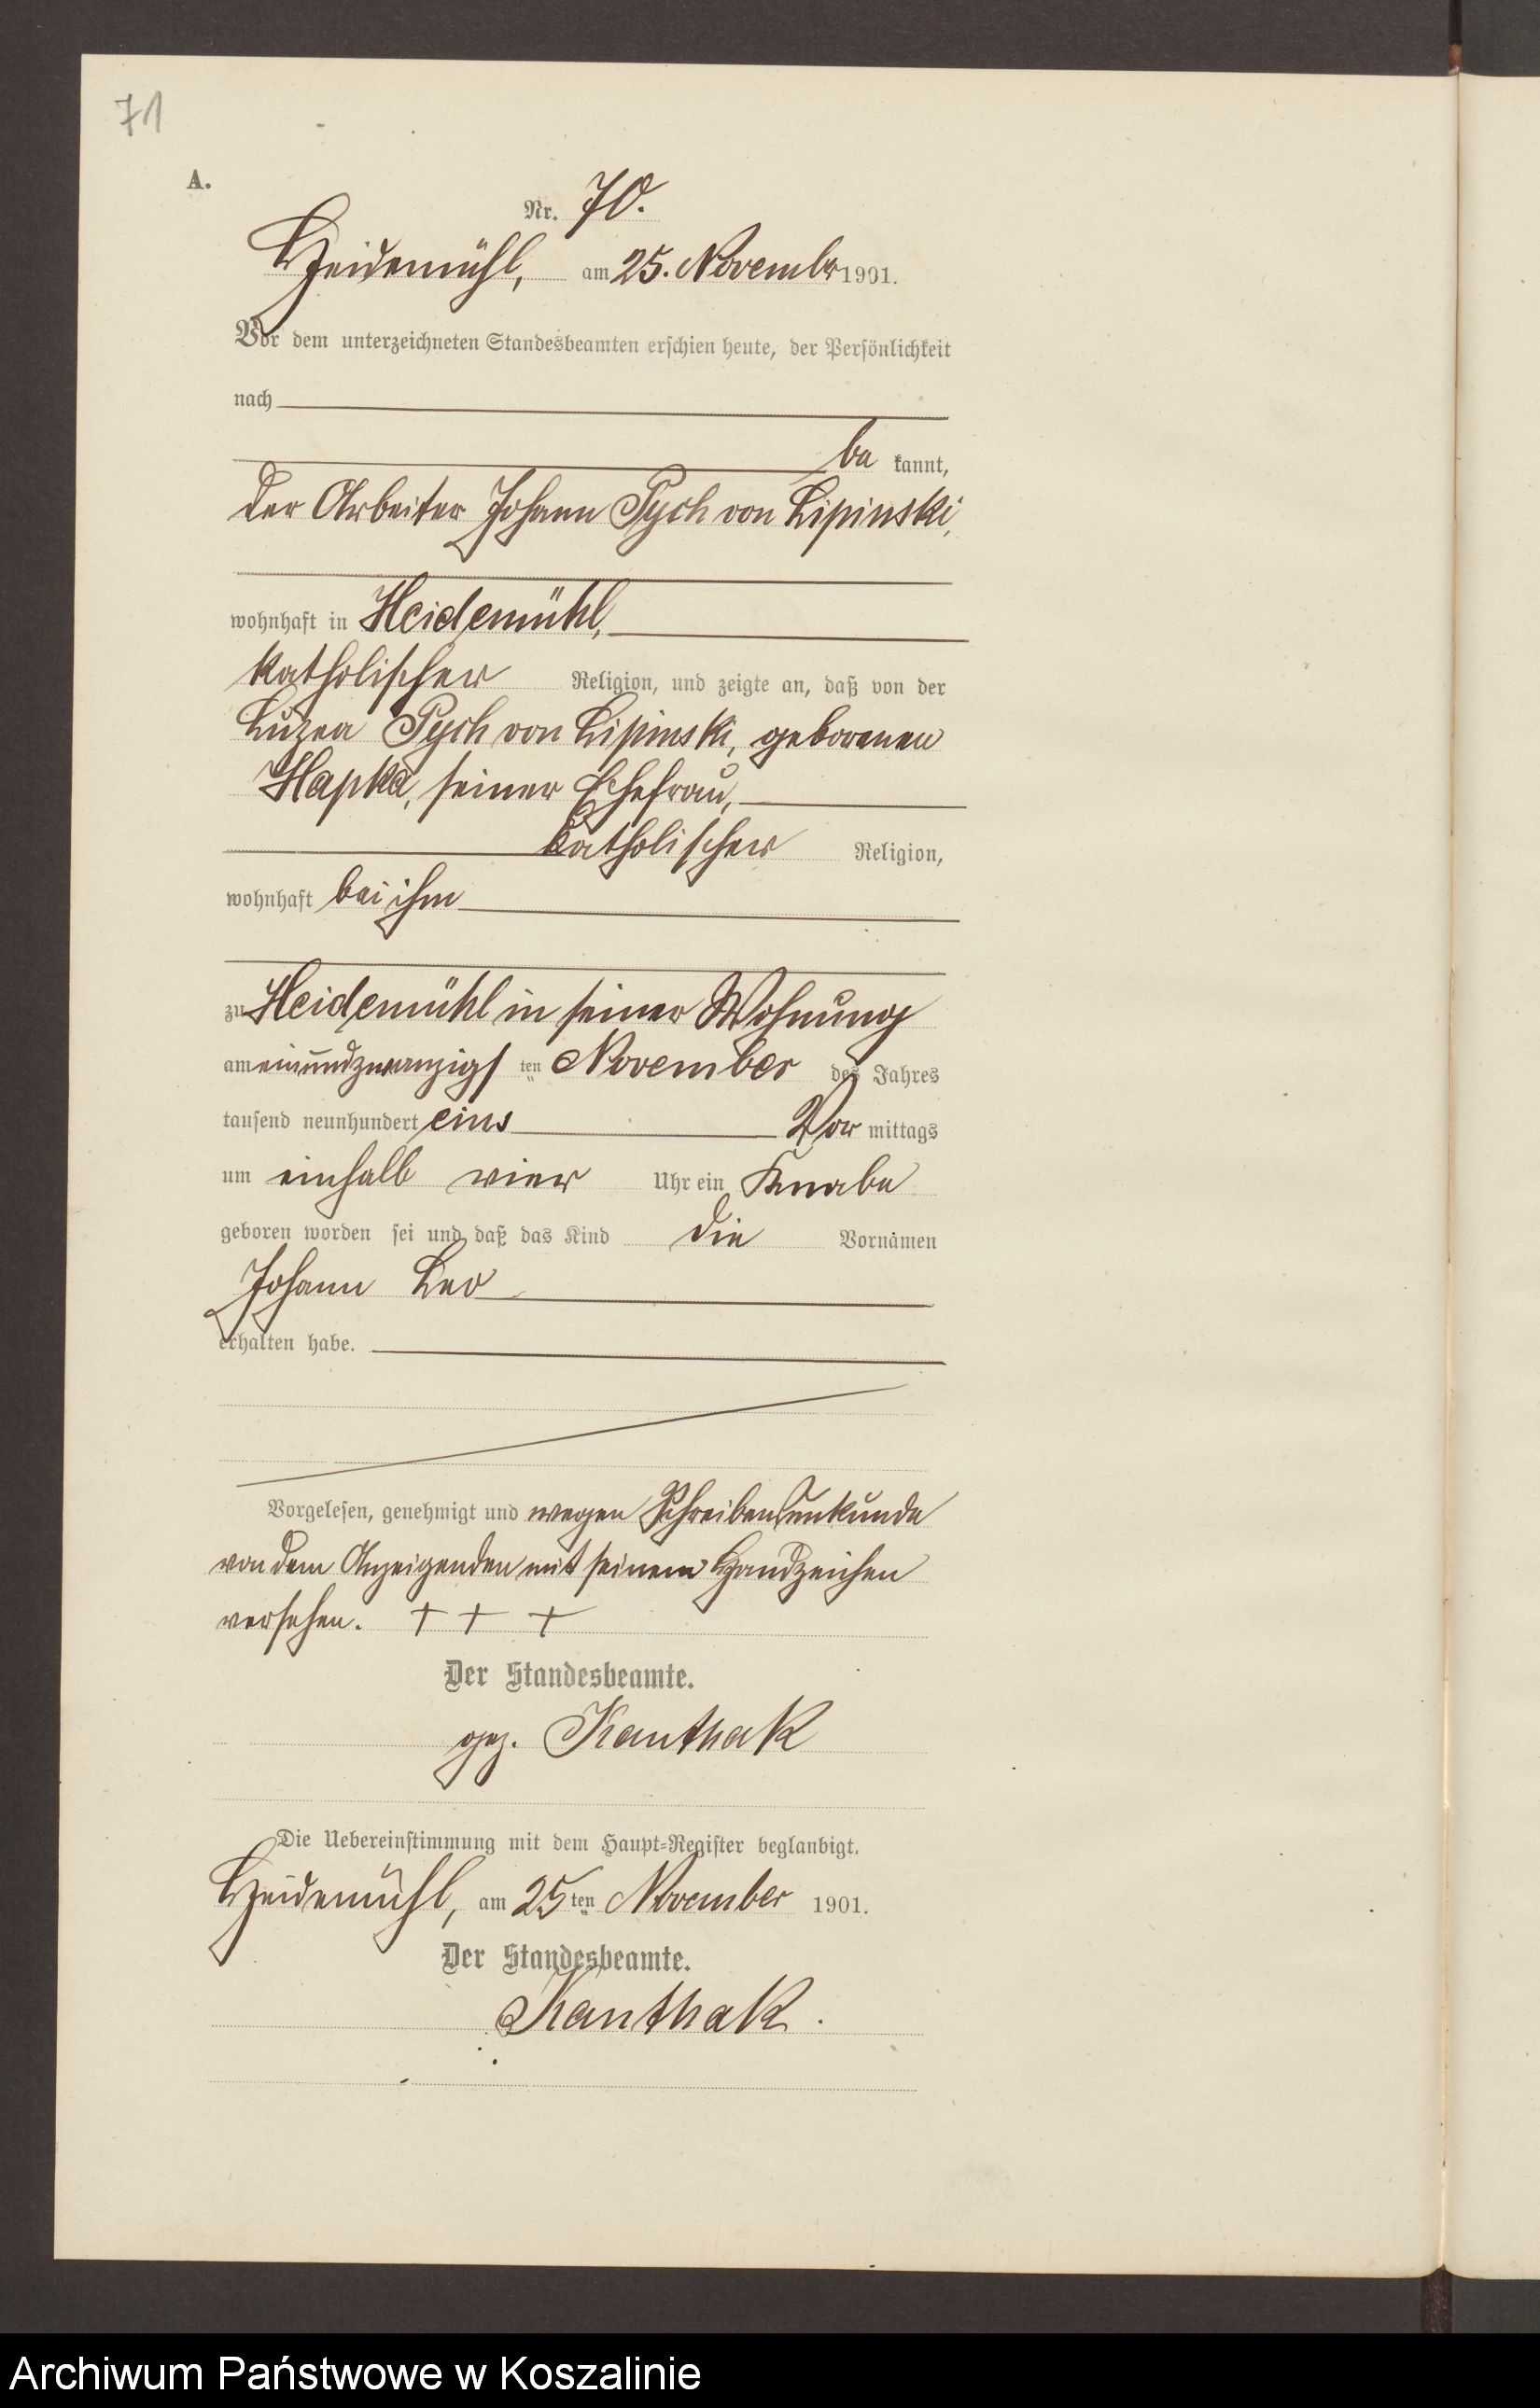 71
A.
Nr. 70.
Heidemühl, am 25. Novembr 1901.
Vor dem unterzeichneten Standesbeamten erschien heute, der Persönlichkeit
nach
be kannt,
der Arbeiter Johann Pych von Lipinski,
wohnhaft in Heidemühl,
katholischer Religion, und zeigte an, daß von der
Luzea Pych von Lipinski, geborenen
Hapka, seiner Ehefrau,
katholischer Religion,
wohnhaft bei ihm
zu Heidemühl in seiner Wohnung
am einundzwanzigs ten November des Jahres
tausend neunhundert eins Vor mittags
um einhalb vier Uhr ein Knabe
geboren worden sei und daß das Kind die Vornamen
Johann Leo
erhalten habe.
Vorgelesen, genehmigt und wegen Schreibensunkunde
von dem Anzeigenden mit seinem Handzeichen
versehen. + + +
Der Standesbeamte.
gez. Kanthak
Die Uebereinstimmung mit dem Haupt-Register beglaubigt.
Heidemühl, am 25 ten November 1901.
Der Standesbeamte.
Kanthak.
Archiwum Państwowe w Koszalinie